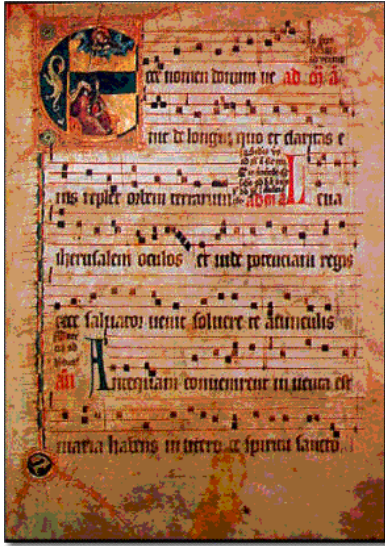 cce nomen domini ue ad m a
nit de longinquo et claritas e
ius replet orbem terrarum
Leua
iherusalem oculos et uide potenciam regis
ecce saluator uenit soluere te a uinculis
an Antequam conuenirent inuenta est
maria habens in utero de spiritu sancto